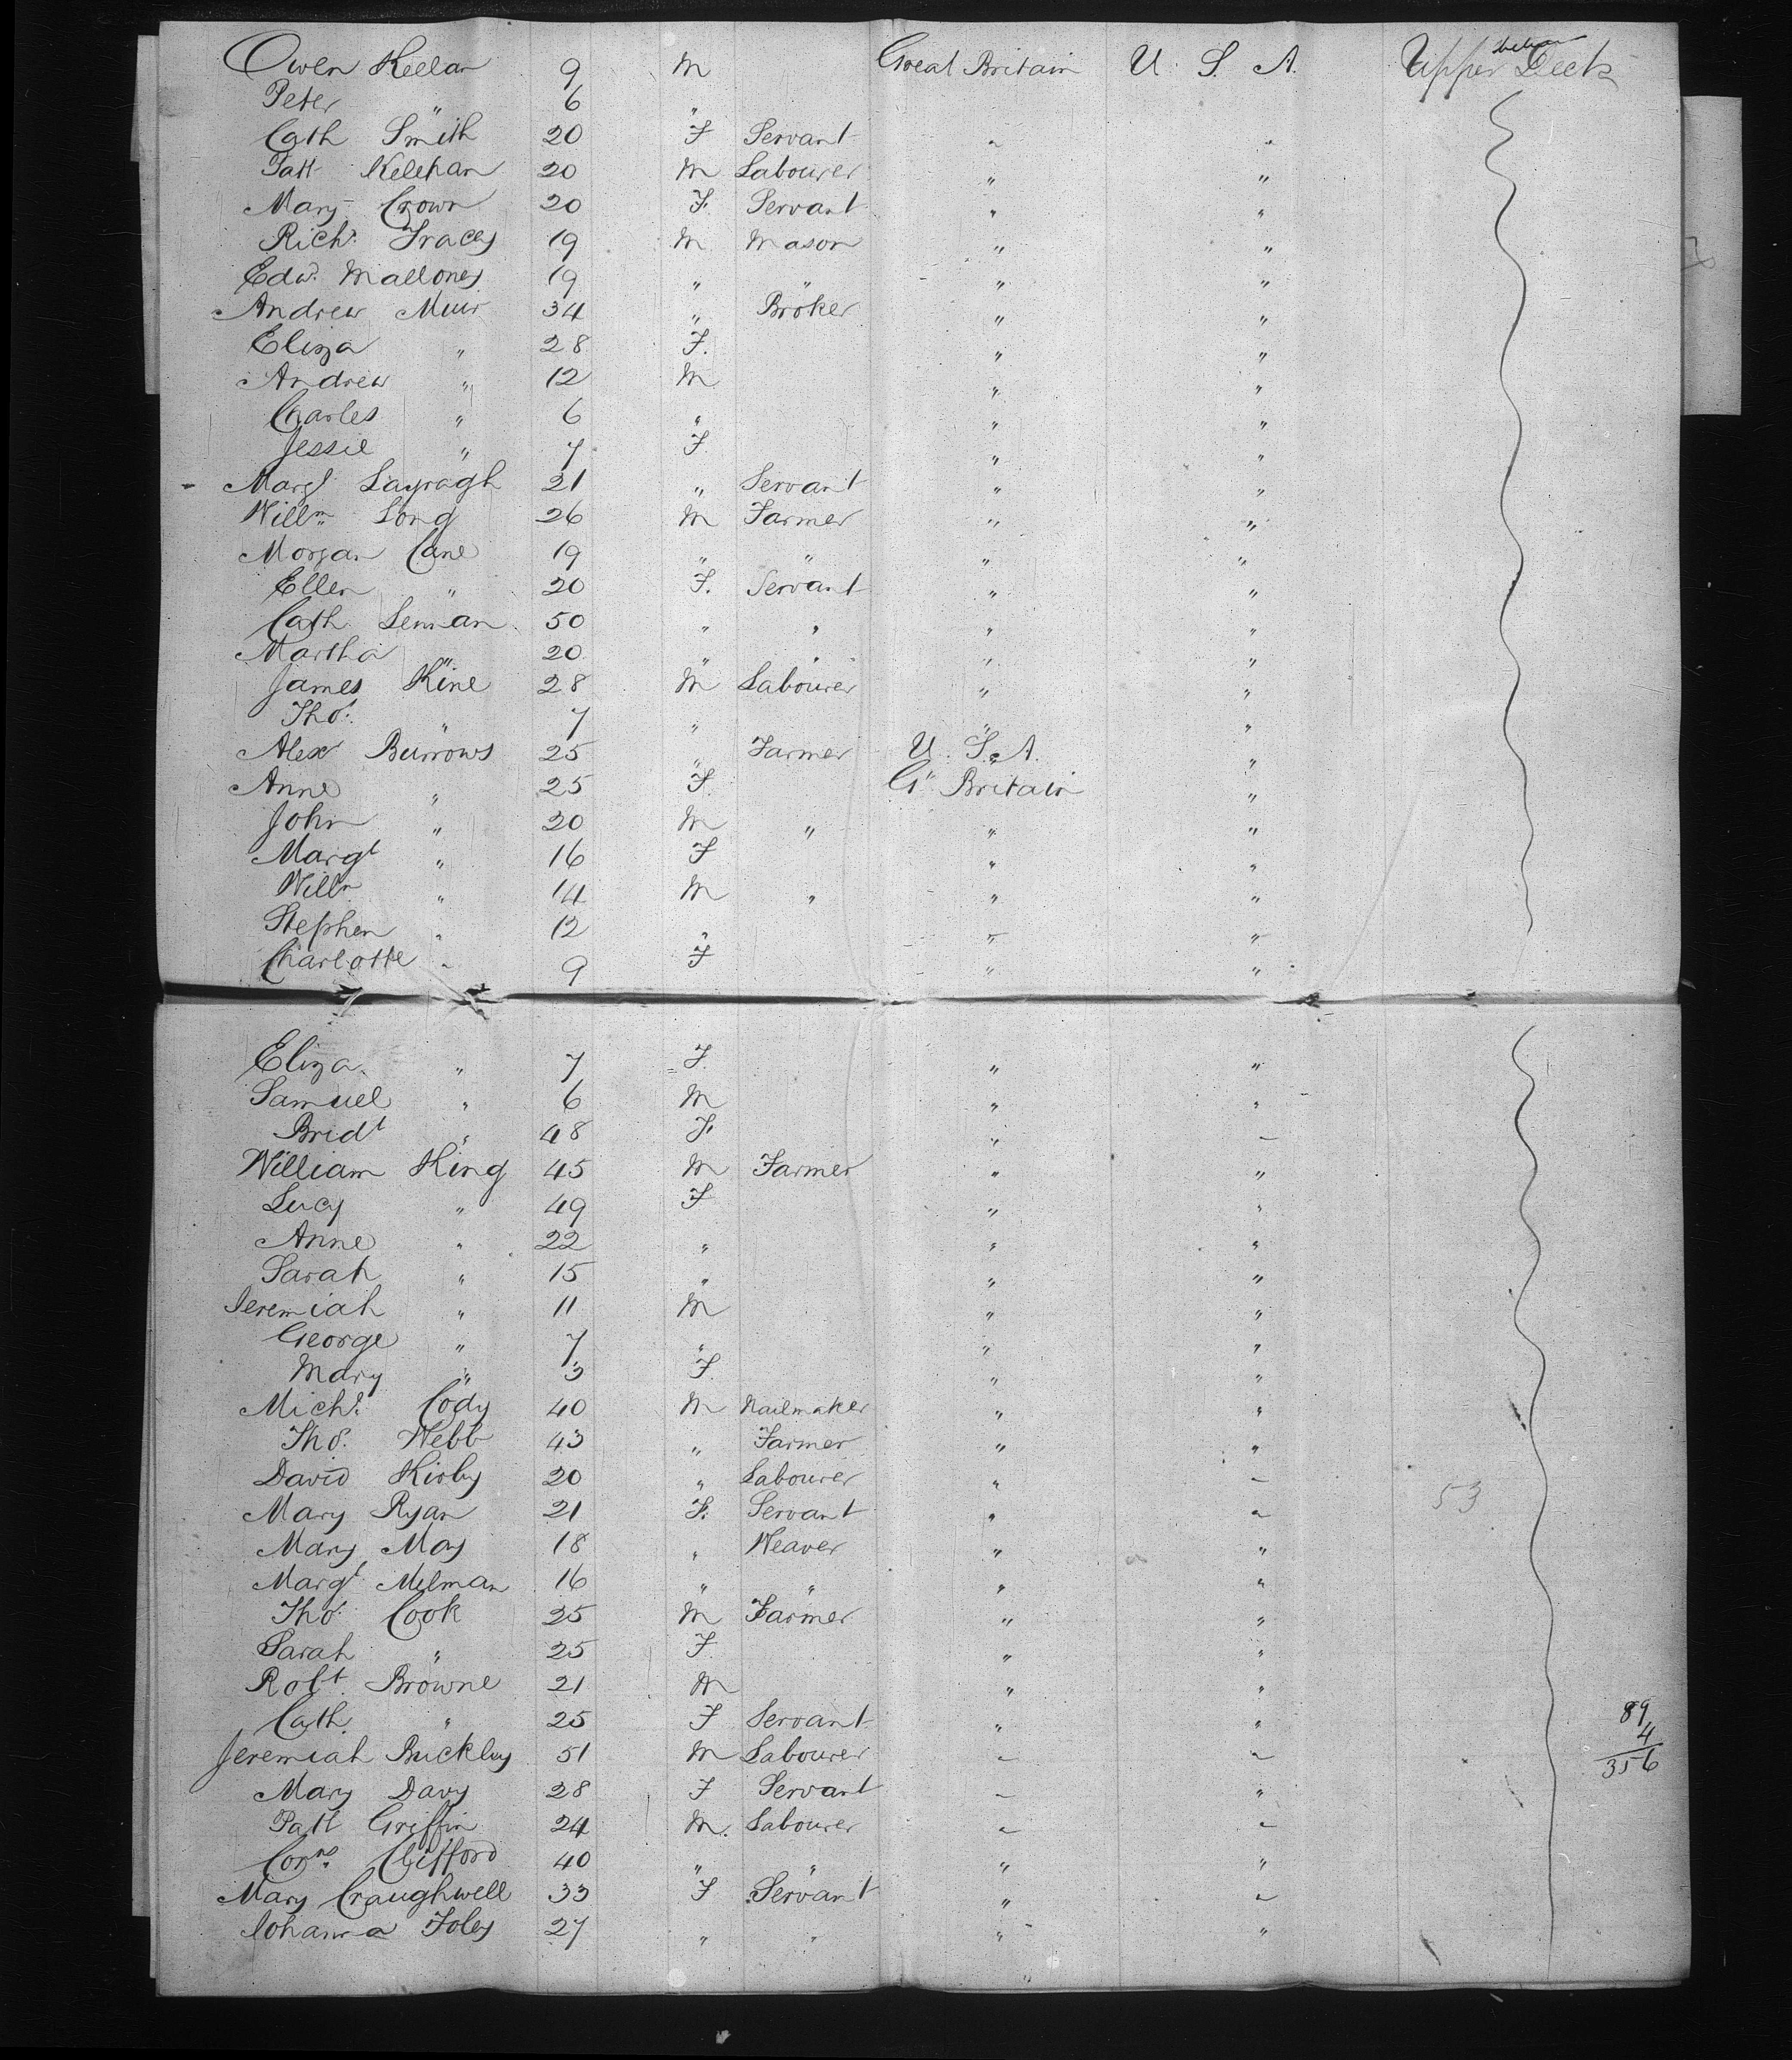 Owen Keelan 9 M Great Britain U. S. A. Upper between Deck
Peter " 6 "
Cath Smith 20 F Servant " "
Patt Kelehan 20 M Labourer " "
Mary Crown 20 F. Servant " "
Richd. Tracey 19 M Mason " "
Edwd. Malloney 19 " " " "
Andrew Muir 34 " Broker " "
Eliza " 28 F. " "
Andrew " 12 M " "
Charles " 6 " " "
Jessie " 7 F " "
Margt 21 " Servant " "
Willm Long 26 M Farmer " "
Morgan Cane 19 " " " "
Ellen " 20 F. Servant " "
Cath Lennan 50 " " " "
Martha " 20 " " " "
James Kine 28 M Labourer " "
Thos. " 7 " " "
Alexr Burrows 25 " Farmer U. S. A. "
Anne " 25 F. Gt Britain "
John " 20 M " " "
Margt " 16 F " "
Willm " 14 M " " "
Stephen " 12 " " "
Charlotte " 9 F " "
Eliza " 7 F. " "
Samuel " 6 M " "
Bridt " 48 F. " "
William King 45 M Farmer " "
Lucy " 49 F " "
Anne " 22 " " "
Sarah " 15 " " "
Jeremiah " 11 M " "
George " 7 " " "
Mary " 3 F. " "
Michl. Cody 40 M Nailmaker " "
Thos. Webb 43 " Farmer " "
David Kirby 20 " Labourer " " 53
Mary Ryan 21 F. Servant " "
Mary May 18 " Weaver " "
Margt Melman 16 " " " "
Thos. Cook 25 M Farmer " "
Sarah " 25 F. " "
Robt. Browne 21 M " "
Cath. " 25 F Servant " " 89
Jeremiah Buckley 51 M Labourer " " 4
356
Mary Davy 28 F Servant " "
Patt Griffin 24 M. Labourer " "
Corns. Clifford 40 " " " "
Mary Craughwell 33 F Servant " "
Johanna Foley 27 " " " "